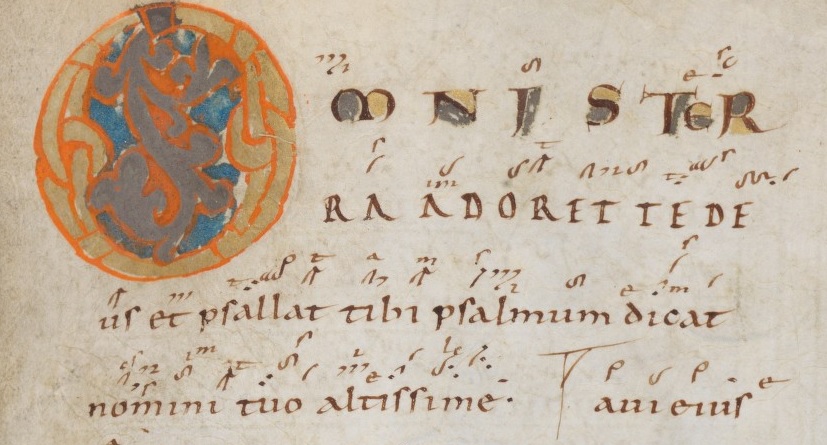 OMNIS TER
RA ADORET TE DE
us et psallat tibi psalmum dicat
nomini tuo altissime.